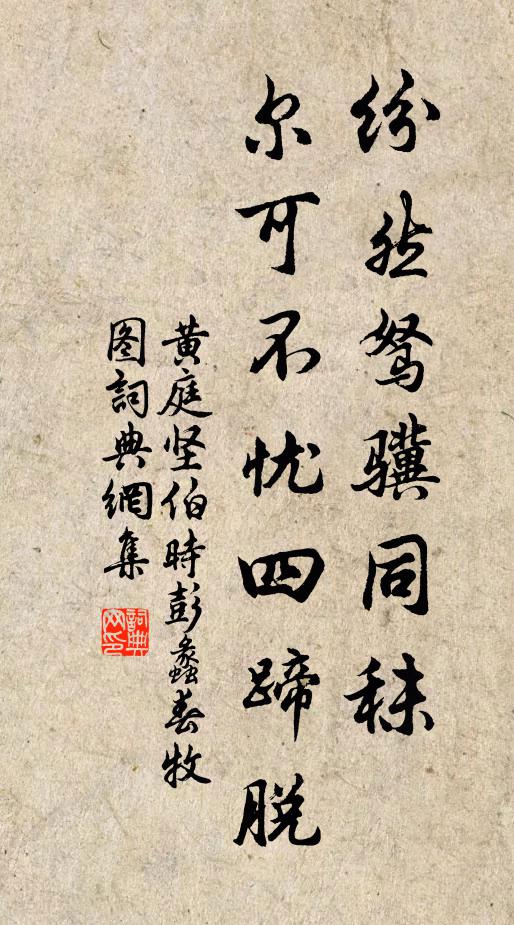 纷然驽骥同秣
尔可不忧四蹄脱
黄庭坚伯时彭蠡春牧
图詞典網集
詞典网印